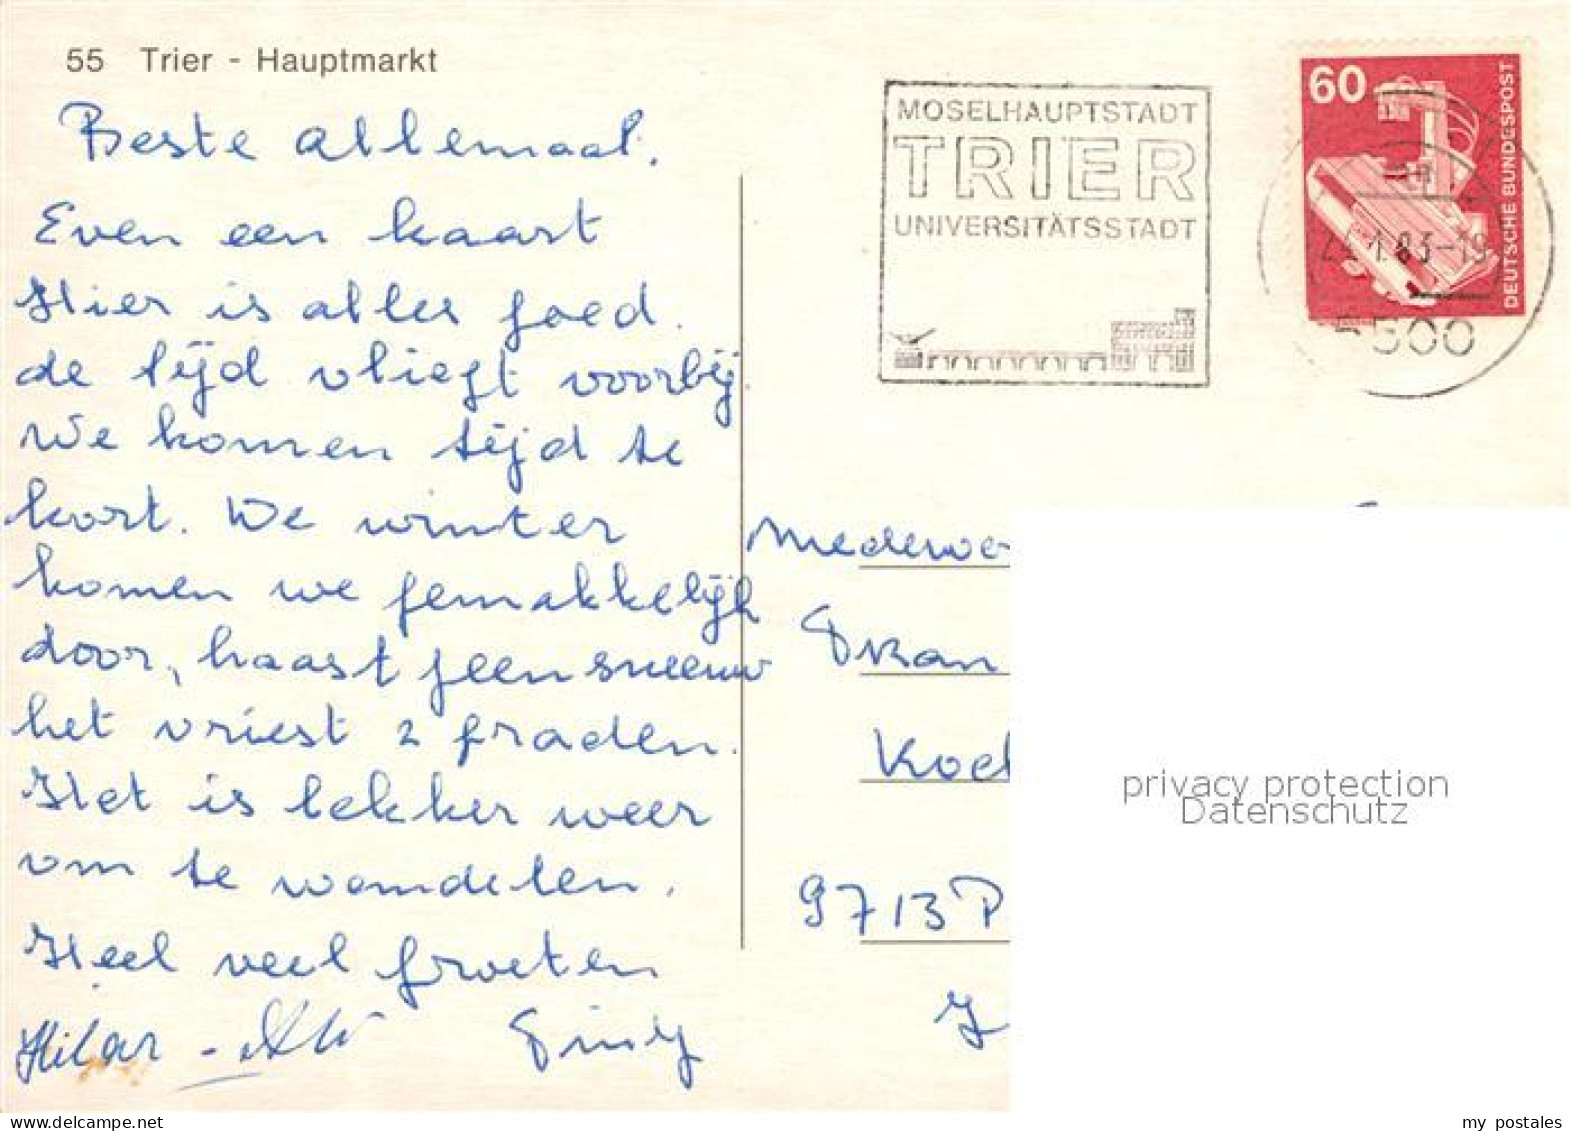 55 Trier - Hauptmarkt
Beste allemaal.
Even een kaart
Hier is alles goed.
de tijd vliegt voorbij.
We komen tijd te
kort. De winter
komen we gemakkelijk
door, haast geen sneeuw
het vriest 2 graden.
Het is lekker weer
om te wandelen.
Heel veel groeten
Hilar -
MOSELHAUPTSTADT
TRIER
UNIVERSITÄTSSTADT
60
DEUTSCHE BUNDESPOST
1.83-19
5500
Medewe
Koe
9713 P
privacy protection
Datenschutz
my postales